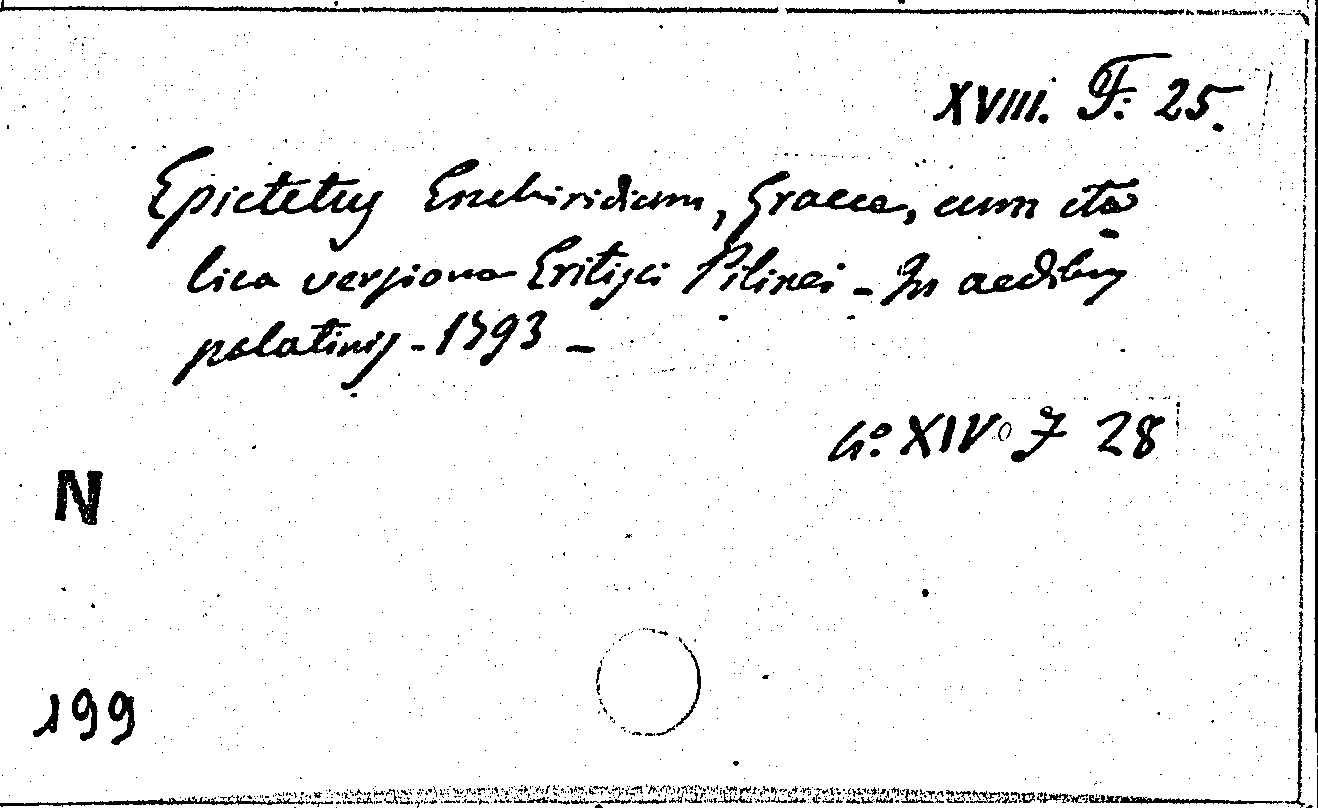 XVIII. F. 25.
Epictetus Enchiridium, Graece, cum ita
lica versione Eritisci Pilinei - In aedibus
palatinis - 1793 -
4º XIV J 28
N
199